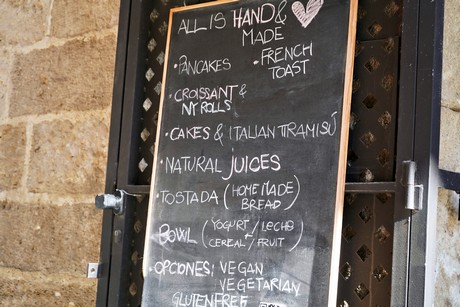 ALL IS HAND &
MADE
• PANCAKES
• FRENCH
TOAST
• CROISSANT &
NY ROLLS
• CAKES & ITALIAN TIRAMISÚ
• NATURAL JUICES
• TOSTADA (HOMEMADE
BREAD)
BOWL (YOGURT / LECHO
CEREAL / FRUIT)
OPCIONES: VEGAN
VEGETARIAN
GLUTENFREE